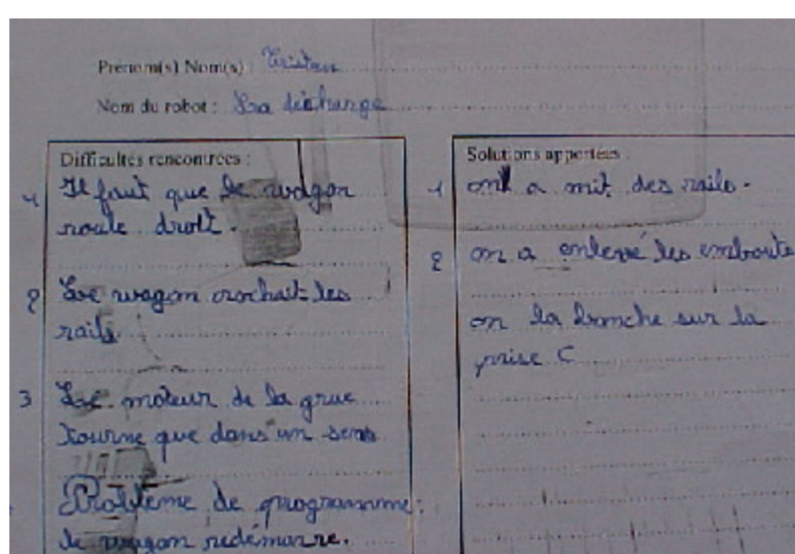 Prénom(s) Nom(s) : Tristan
Nom du robot : La décharge
Difficultés rencontrées :
1 Il faut que le wagon
roule droit.
2 Le wagon crochait les
rails.
3 Le moteur de la grue
tourne que dans un sens
Problème de programme :
le wagon redémarre.
Solutions apportées :
1 on a mit des rails.
2 on a enlevé les embouts
on la branche sur la
prise C